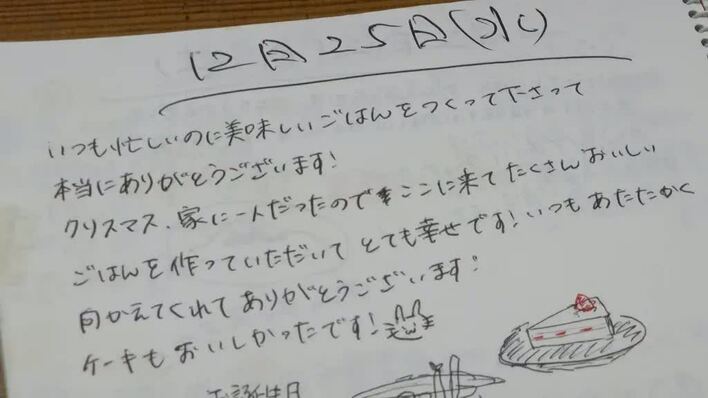 12月25日(水)
いつも忙しいのに美味しいごはんをつくって下さって
本当にありがとうございます!
クリスマス、家に一人だったのでここに来てたくさんおいしい
ごはんを作っていただいてとても幸せです!いつもあたたかく
向かえてくれてありがとうございます!
ケーキもおいしかったです!
お誕生日